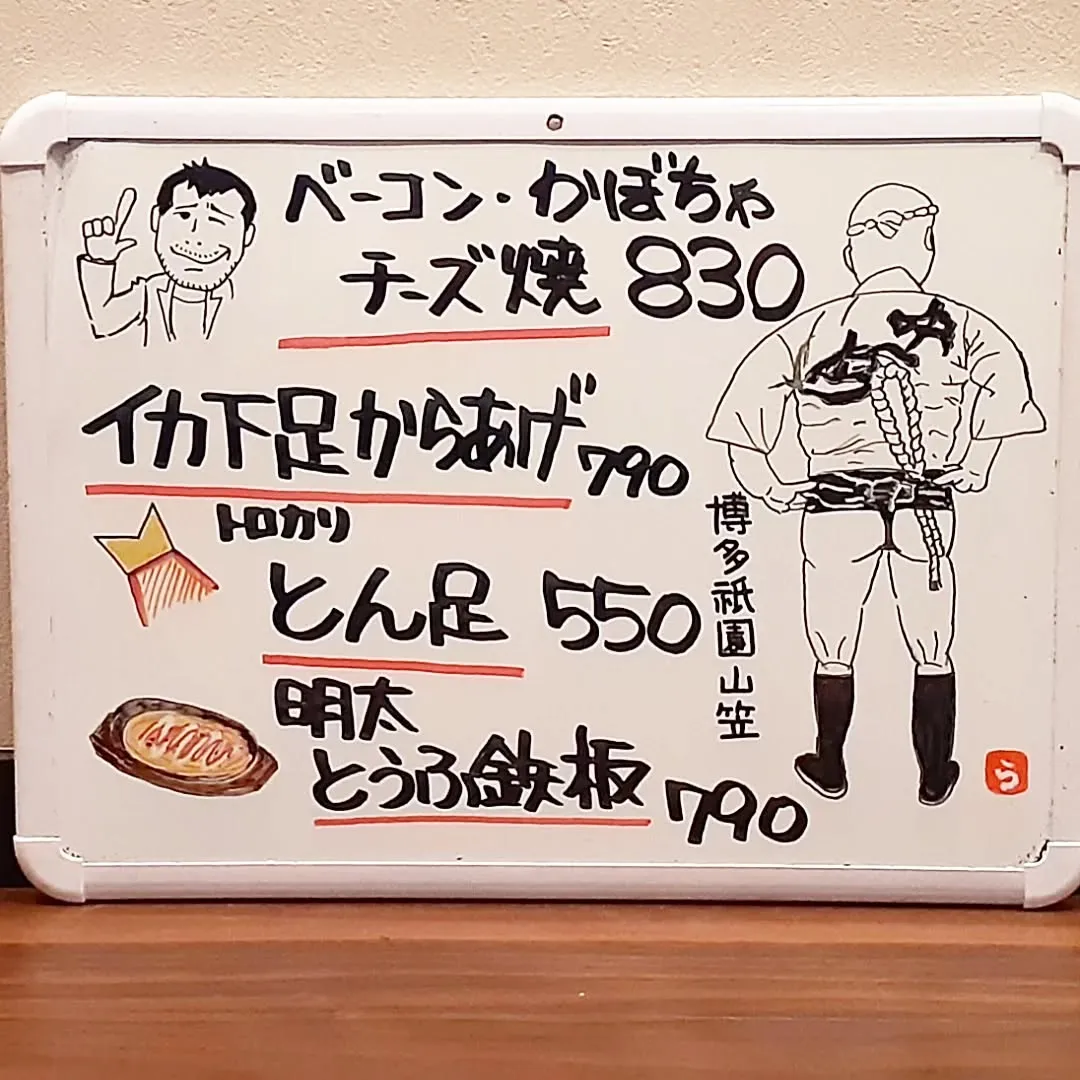 ベーコン・かぼちゃ
チーズ焼 830
イカ下足からあげ 790
トロカリ
とん足 550
明太
とうふ鉄板 790
博多祇園山笠
ら